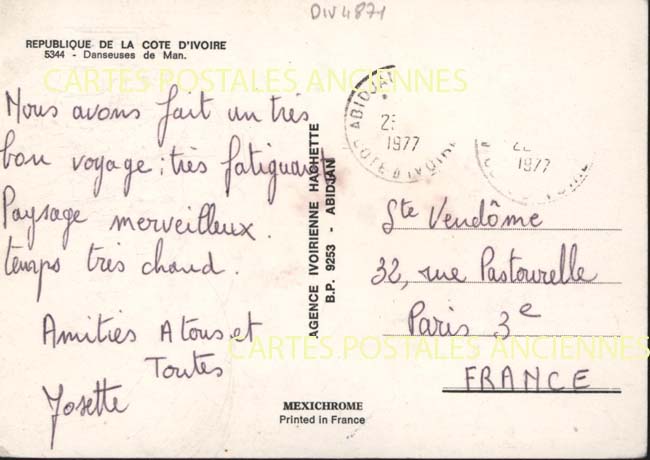 DIV4871
REPUBLIQUE DE LA COTE D'IVOIRE
5344 - Danseuses de Man.
CARTES POSTALES ANCIENNES
Nous avons fait un très
bon voyage; très fatiguant
Paysage merveilleux.
temps très chaud.
Amitiés A tous et
Toutes
Josette
AGENCE IVOIRIENNE HACHETTE
B.P. 9253 - ABIDJAN
ABIDJAN
1977
COTE D'IVOIRE
1977
Ste Vendôme
32, rue Pastourelle
Paris 3e
FRANCE
CARTES POSTALES ANCIENNES
MEXICHROME
Printed in France